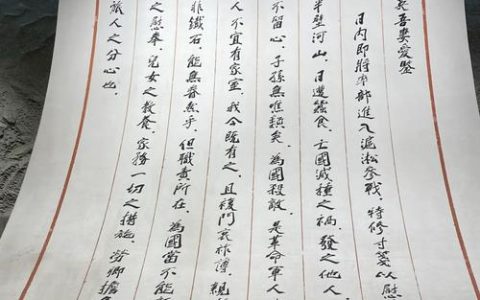 吾妻愛鑒
日內即將率部進入滬淞參戰，特修寸箋以慰
半壁河山，日遭蠶食，亡國滅種之禍，發之他人
不留心，子孫無噍類矣，為國殺敵，是革命軍人
人不宜有家室，我今既有之，且後門衰祚薄，親
非鐵石，能無眷然乎，但職責所在，為國當不能
之慰奉，兒女之教養，家務一切之措施，勞卿擔
旅人之分心也，